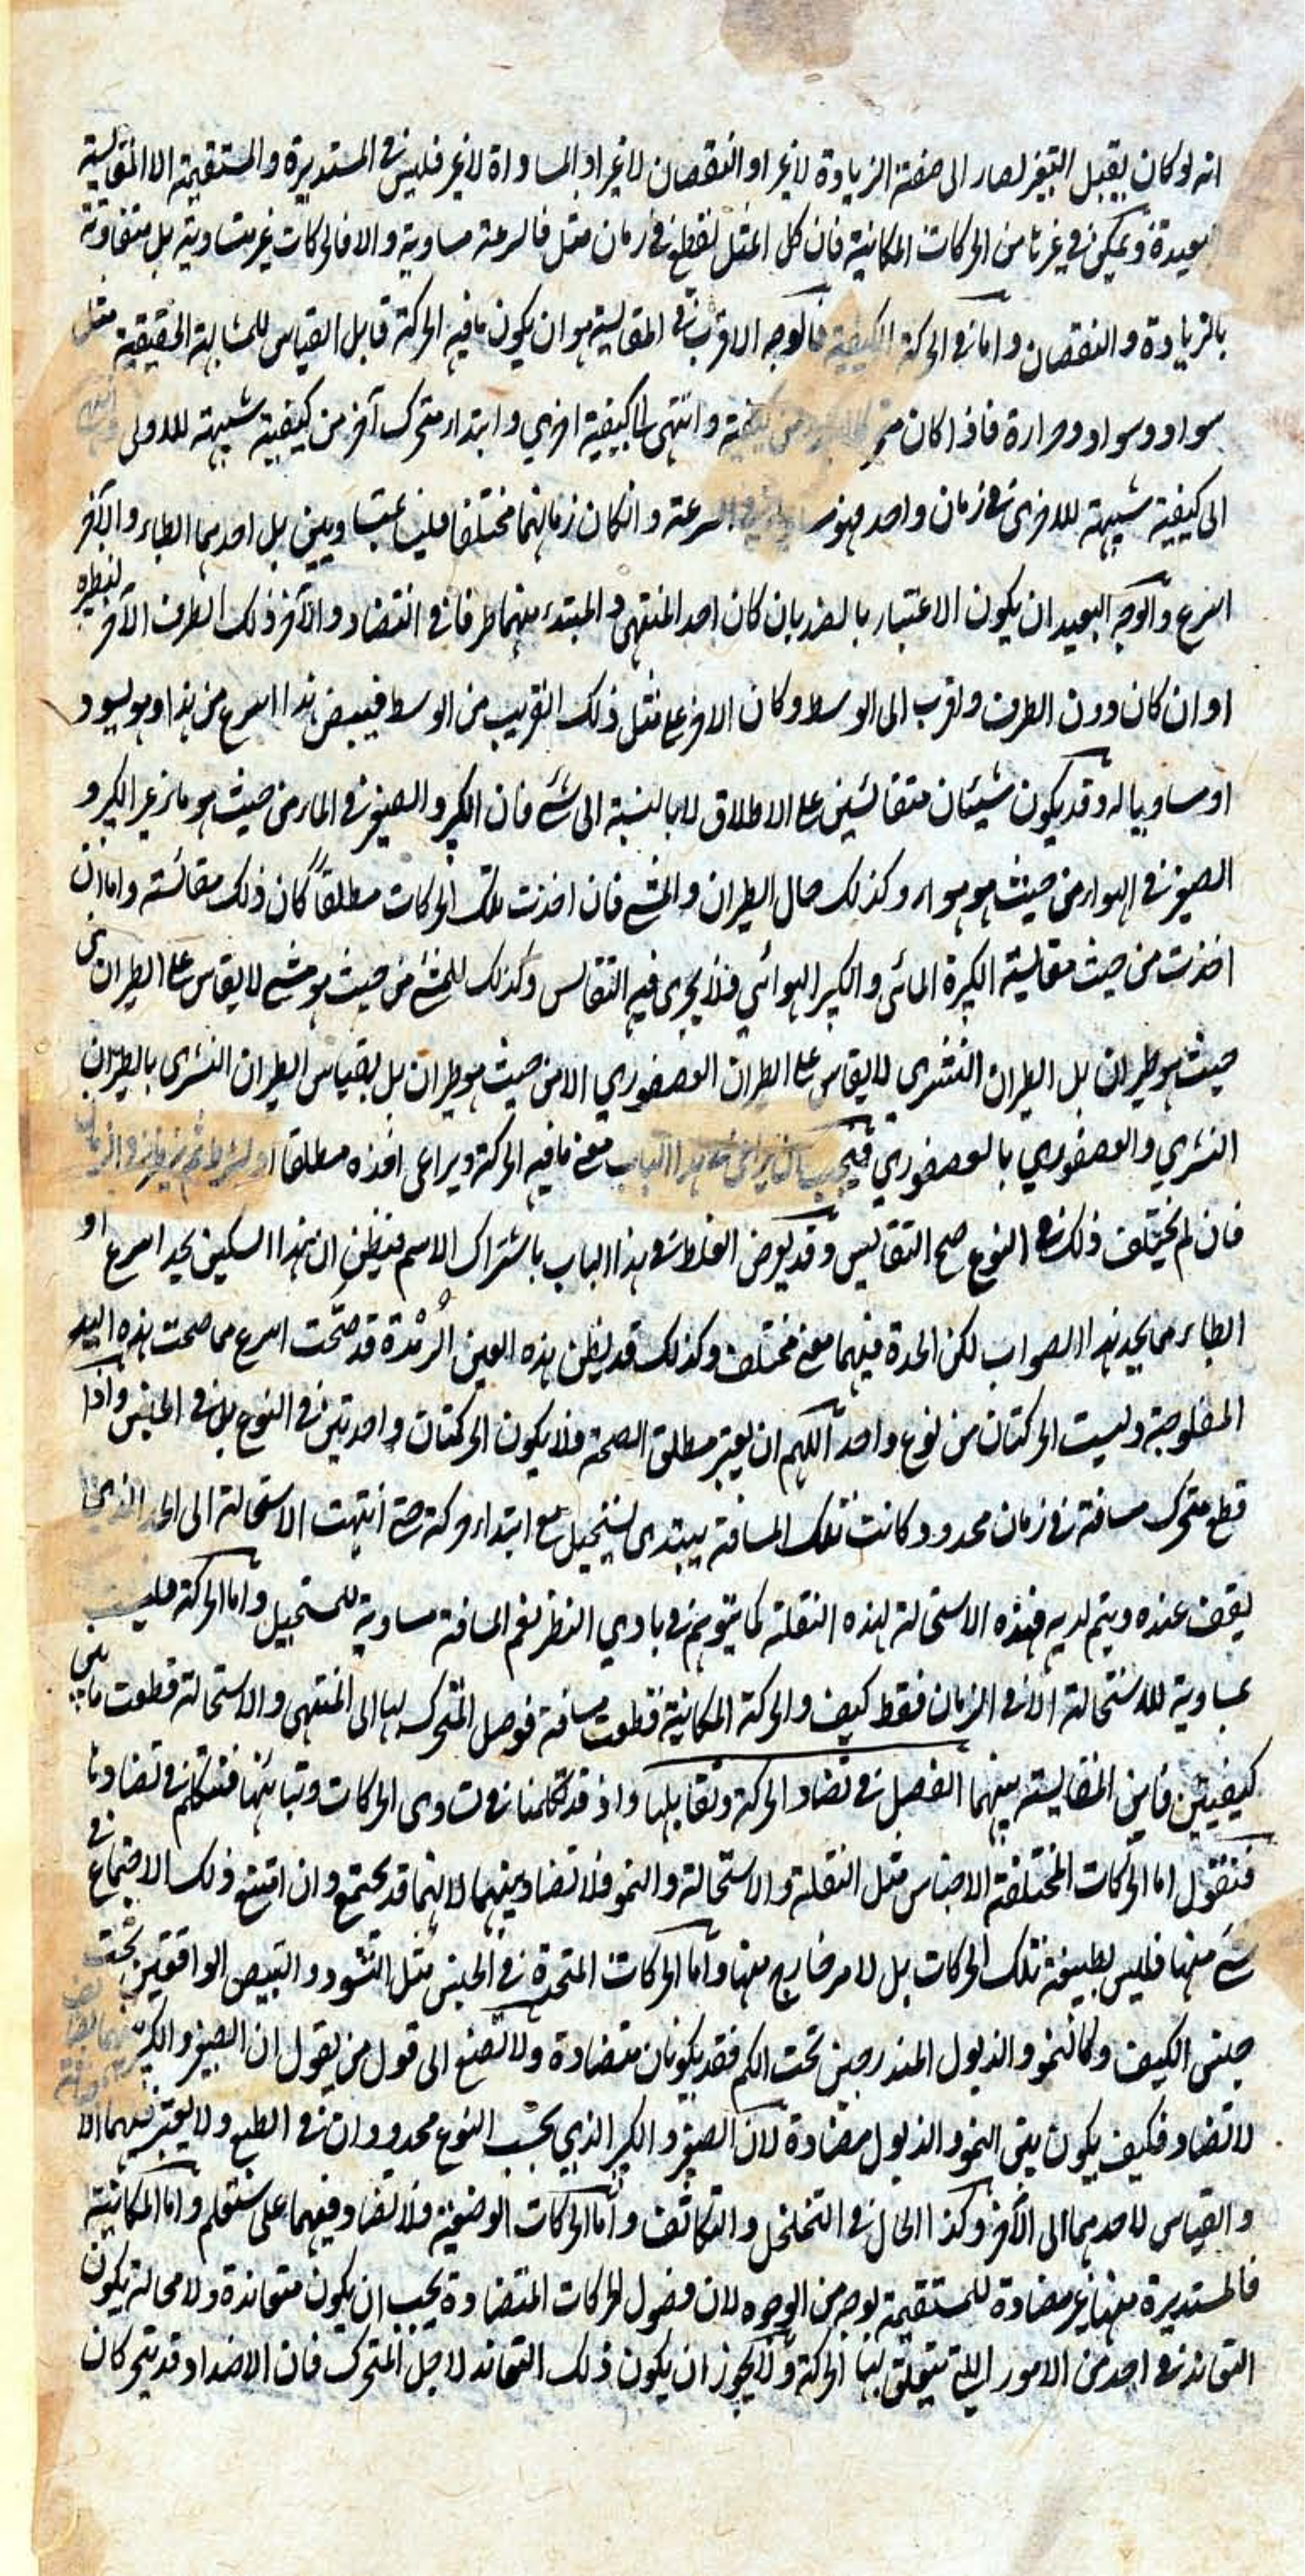 انه لو كان يقبل التغير لصار الى صفته الزيادة لا غير او النقصان لا غير او المساواة لا غير فليس في المستديرة والمستقيمة الا المقايسة
بعيدة ويمكن في غيرها من الحركات المكانية فان كل المثل لقطع في زمان مثل فالسرعة مساوية والا فالحركات غير متساوية بل متفاوتة
بالزيادة والنقصان واما في الحركة الكيفية فالوجه الاقرب في المقايسة هو ان يكون ما فيه الحركة قابل القياس للمشابهة الحقيقية مثل
سواد وسواد وحرارة فاذا كان من كيفية وانتهى الى كيفية اخرى وابتداء متحرك آخر من كيفية شبيهة للاولى
الى كيفية شبيهة للاخرى في زمان واحد فهو السرعة وان كان زمانهما مختلفا فليسا بمتساويين بل احدهما ابطاء والآخر
اسرع والوجه البعيد ان يكون الاعتبار بالضد بان كان احد المنتهى والمبتدء منهما طرفا في التضاد والآخر ذلك الطرف الآخر لنظيره
او ان كان دون الطرف واقرب الى الوسط وكان الاخر على مثل ذلك القريب من الوسط فيبيض هذا اسرع من هذا وهو يسود
او مساويا له وقد يكون شيئان متقائسين على الاطلاق لا بالنسبة الى شئ فان الكبر والصغر في الماء من حيث هو ماء غير الكبر و
الصغر في الهواء من حيث هو هواء وكذلك حال الطيران والمشي فان اخذت تلك الحركات مطلقاً كان ذلك مقائسة واما ان
اخذت من حيث مقايسة الكبرة المائى والكبر الهوائي فلا يجرى فيه التقايس وكذلك للمشى من حيث هو مشي لا يقاس على الطيران من
حيث هو طيران بل الطيران النسرى لا يقاس على الطيران العصفوري الا من حيث هو طيران بل يقياس الطيران النسرى بالطيران
النسري والعصفوري بالعصفوري فيجب ان يراعى في هذا الباب معنى ما فيه الحركة ويراعى اخذه مطلقا او بشرط
فان لم يختلف ذلك في النوع صح التقايس وقد يعرض الغلط في هذا الباب باشتراك الاسم فيظن ان هذا السكين يحد اسرع او
ابطاء مما يحد هذا الصواب لكن الحدة فيهما معنى مختلف وكذلك قد يظن هذه العين الرمدة قد صحت اسرع مما صحت هذه اليد
المفلوجة وليست الحركتان من نوع واحد اللهم ان يعتبر مطلق الصحة فلا يكون الحركتان واحدتين في النوع بل في الجنس واذا
قطع متحرك مسافة في زمان محدود وكانت تلك المسافة يبتدى يستحيل مع ابتداء حركته حتى انتهت الاستحالة الى الحد الذي
يقف عنده ويتم لديه فهذه الاستحالة لهذه النقلة كما يتوهم في بادي النظر نعم المسافة مساوية للمستحيل واما الحركة فليست
بمساوية للاستحالة الا في الزمان فقط كيف والحركة المكانية قطعت مسافة فوصل المتحرك لها الى المنتهى والاستحالة قطعت ما بين
كيفيتين فاين المقايسة بينهما الفصل في تضاد الحركة وتقابلها واذ قد تكلمنا في تساوى الحركات وتباينها فنتكلم في تضادها
فنقول اما الحركات المختلفة الاجناس مثل النقلة والاستحالة والنمو فلا تضاد بينهما لانهما قد يجتمع وان امتنع ذلك الاجتماع في
شئ منها فليس لطبيعة تلك الحركات بل لامر خارج عنها واما الحركات المتحدة في الجنس مثل التسود والتبيض الواقعين تحت
جنس الكيف وكالنمو والذبول المندرجين تحت الكم فقد يكونان متضادة ولا تصغ الى قول من يقول ان الصغر والكبر
لا تضاد فكيف يكون بين النمو والذبول مضادة لان الصغر والكبر الذي بحسب النوع محدودان في الطبع ولا يعتبر فيهما الا
والقياس لاحدهما الى الآخر وكذا الحال في التخلخل والتكاثف واما الحركات الوضعية فلا تضاد فيهما على ستعلم واما المكانية
فالمستديرة منها غير مضادة للمستقيمة بوجه من الوجوه لان فصول الحركات المتضادة يجب ان يكون متعاندة ولا محالة يكون
التعاند في احد من الامور اللتي يتعلق بها الحركة ولا يجوز ان يكون ذلك التعاند لاجل المتحرك فان الاضداد قد يتحركان